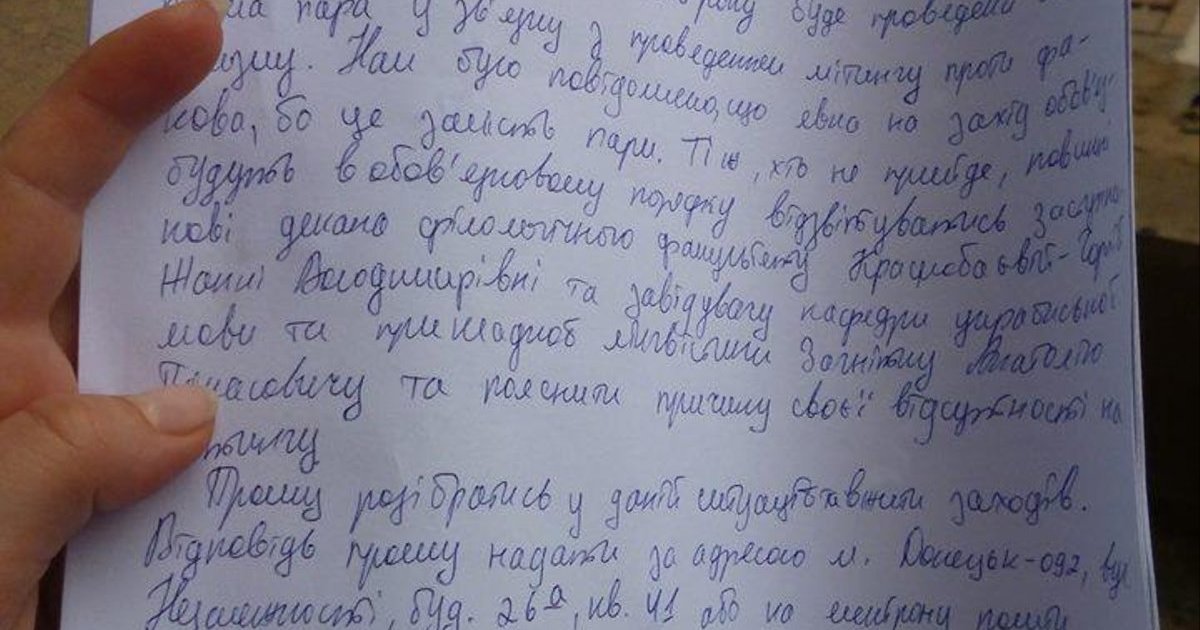 пара у зв'язку з проведенням мітингу проти фа-
шизму. Нам було повідомлено, що явка на захід обов'яз
кова, бо це замість пари. Ті ж, хто не прийде, повинні
будуть в обов'язковому порядку відзвітуватись заступни
кові декана філологічного факультету Краснобаєвій-Чорній
Жанні Володимирівні та завідувачу кафедри української
мови та прикладної лінгвістики Загнітку Анатолію
Панасовичу та пояснити причину своєї відсутності на
мітингу
Прошу розібратись у даній ситуації та вжити заходів.
Відповідь прошу надати за адресою м. Донецьк-092, вул
Незалежності, буд. 26а, кв. 41 або на електрону пошту